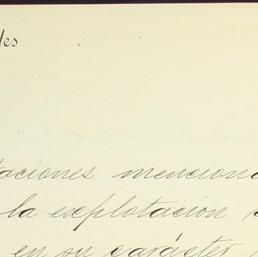 des
taciones menciona
la esplotacion
en su carácter